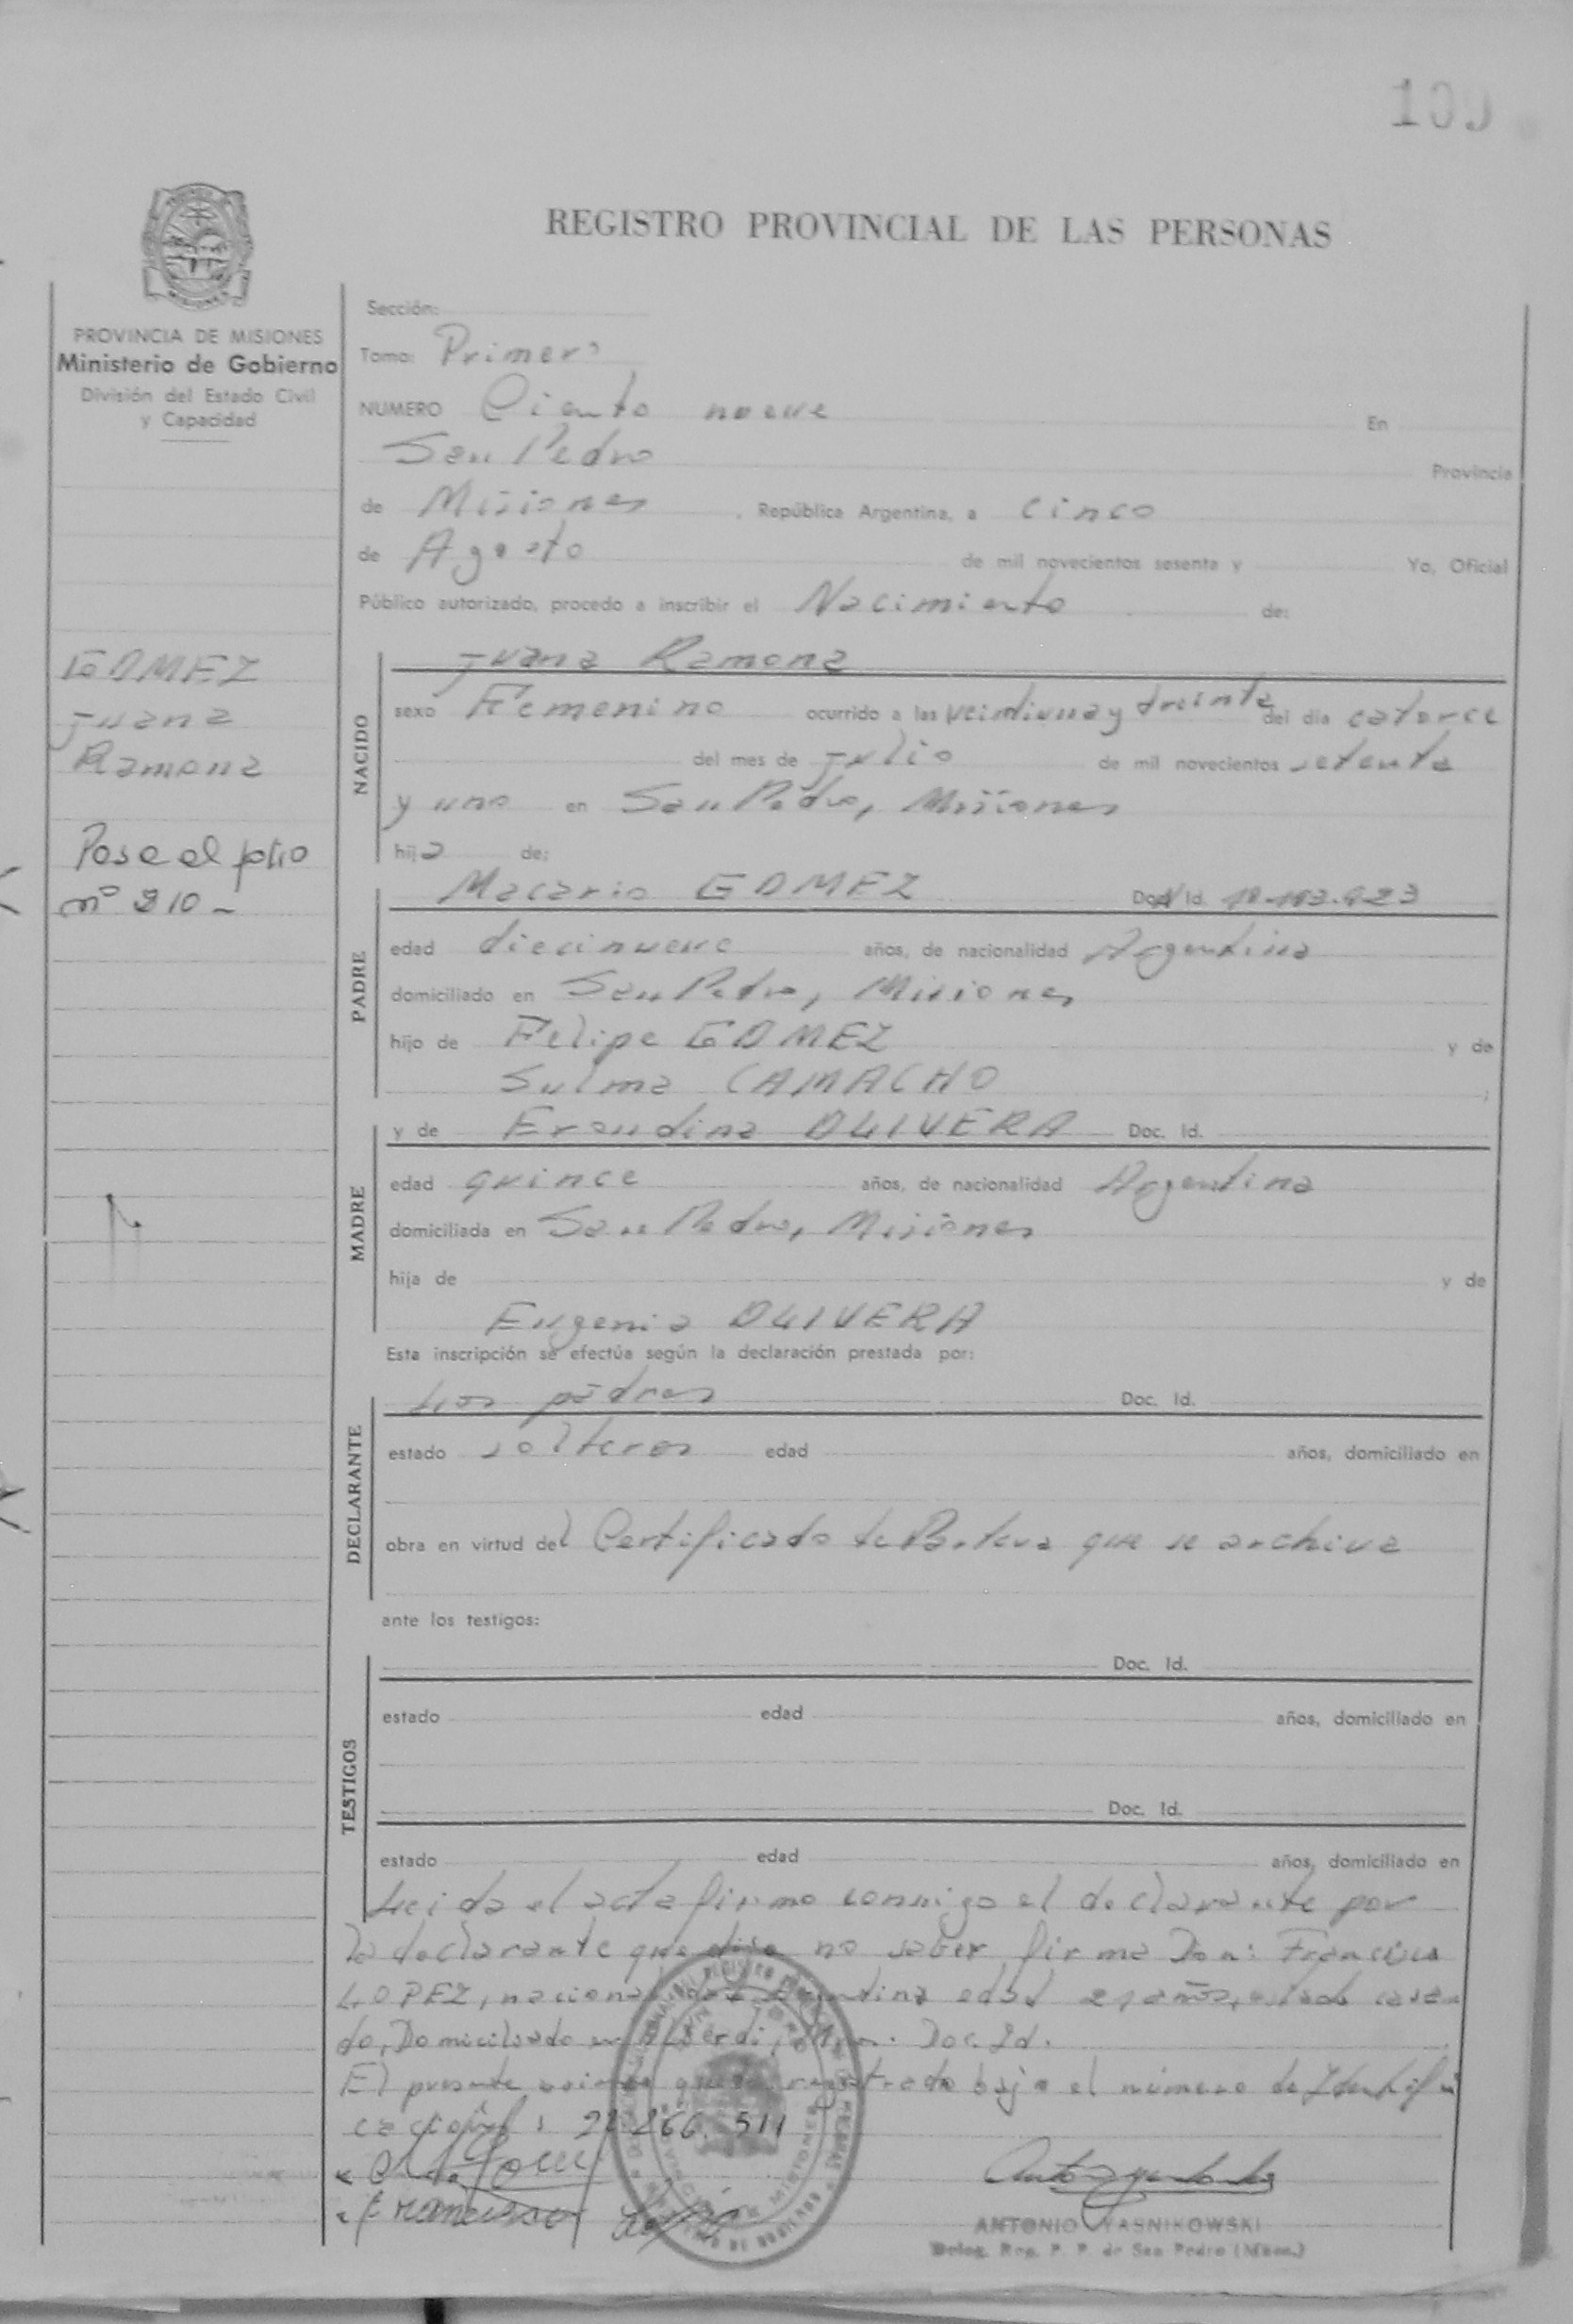 109
REGISTRO PROVINCIAL DE LAS PERSONAS
MISIONES
PROVINCIA DE MISIONES
Ministerio de Gobierno
División del Estado Civil
y Capacidad
GOMEZ
Juana
Ramona
Pase al folio
nº 210 -
Sección:
Tomo: Primero
NUMERO Ciento nueve En
San Pedro Provincia
de Misiones, República Argentina, a cinco
de Agosto de mil novecientos sesenta y Yo, Oficial
Público autorizado, procedo a inscribir el Nacimiento de:
NACIDO
Juana Ramona
sexo Femenino ocurrido a las veintiuna y treinta del día catorce
del mes de julio de mil novecientos setenta
y uno en San Pedro, Misiones
hija de:
PADRE
Macario GOMEZ Doc. Id.
edad diecinueve años, de nacionalidad Argentina
domiciliado en San Pedro, Misiones
hijo de Felipe GOMEZ y de
Sulma CAMACHO ;
MADRE
y de Erondina OLIVERA Doc. Id.
edad quince años, de nacionalidad Argentina
domiciliada en San Pedro, Misiones
hija de y de
Eugenia OLIVERA
Esta inscripción se efectúa según la declaración prestada por:
DECLARANTE
Los padres Doc. Id.
estado solteros edad años, domiciliado en
obra en virtud del Certificado de Partera que se archiva
ante los testigos:
TESTIGOS
Doc. Id.
estado edad años, domiciliado en
Doc. Id.
estado edad años, domiciliado en
Leida el acta firmo conmigo el declarante por
la declarante que dijo no saber firma Don: Francisco
LOPEZ, nacionalidad Argentina edad 21 años, estado casa
do, Domiciliado en Doc. Id.
El presente queda registrado bajo el número de Identifi
cación: 22.266.511
Francisco
ANTONIO YASNIKOWSKI
Deleg. Reg. P. P. de San Pedro (Mnes.)